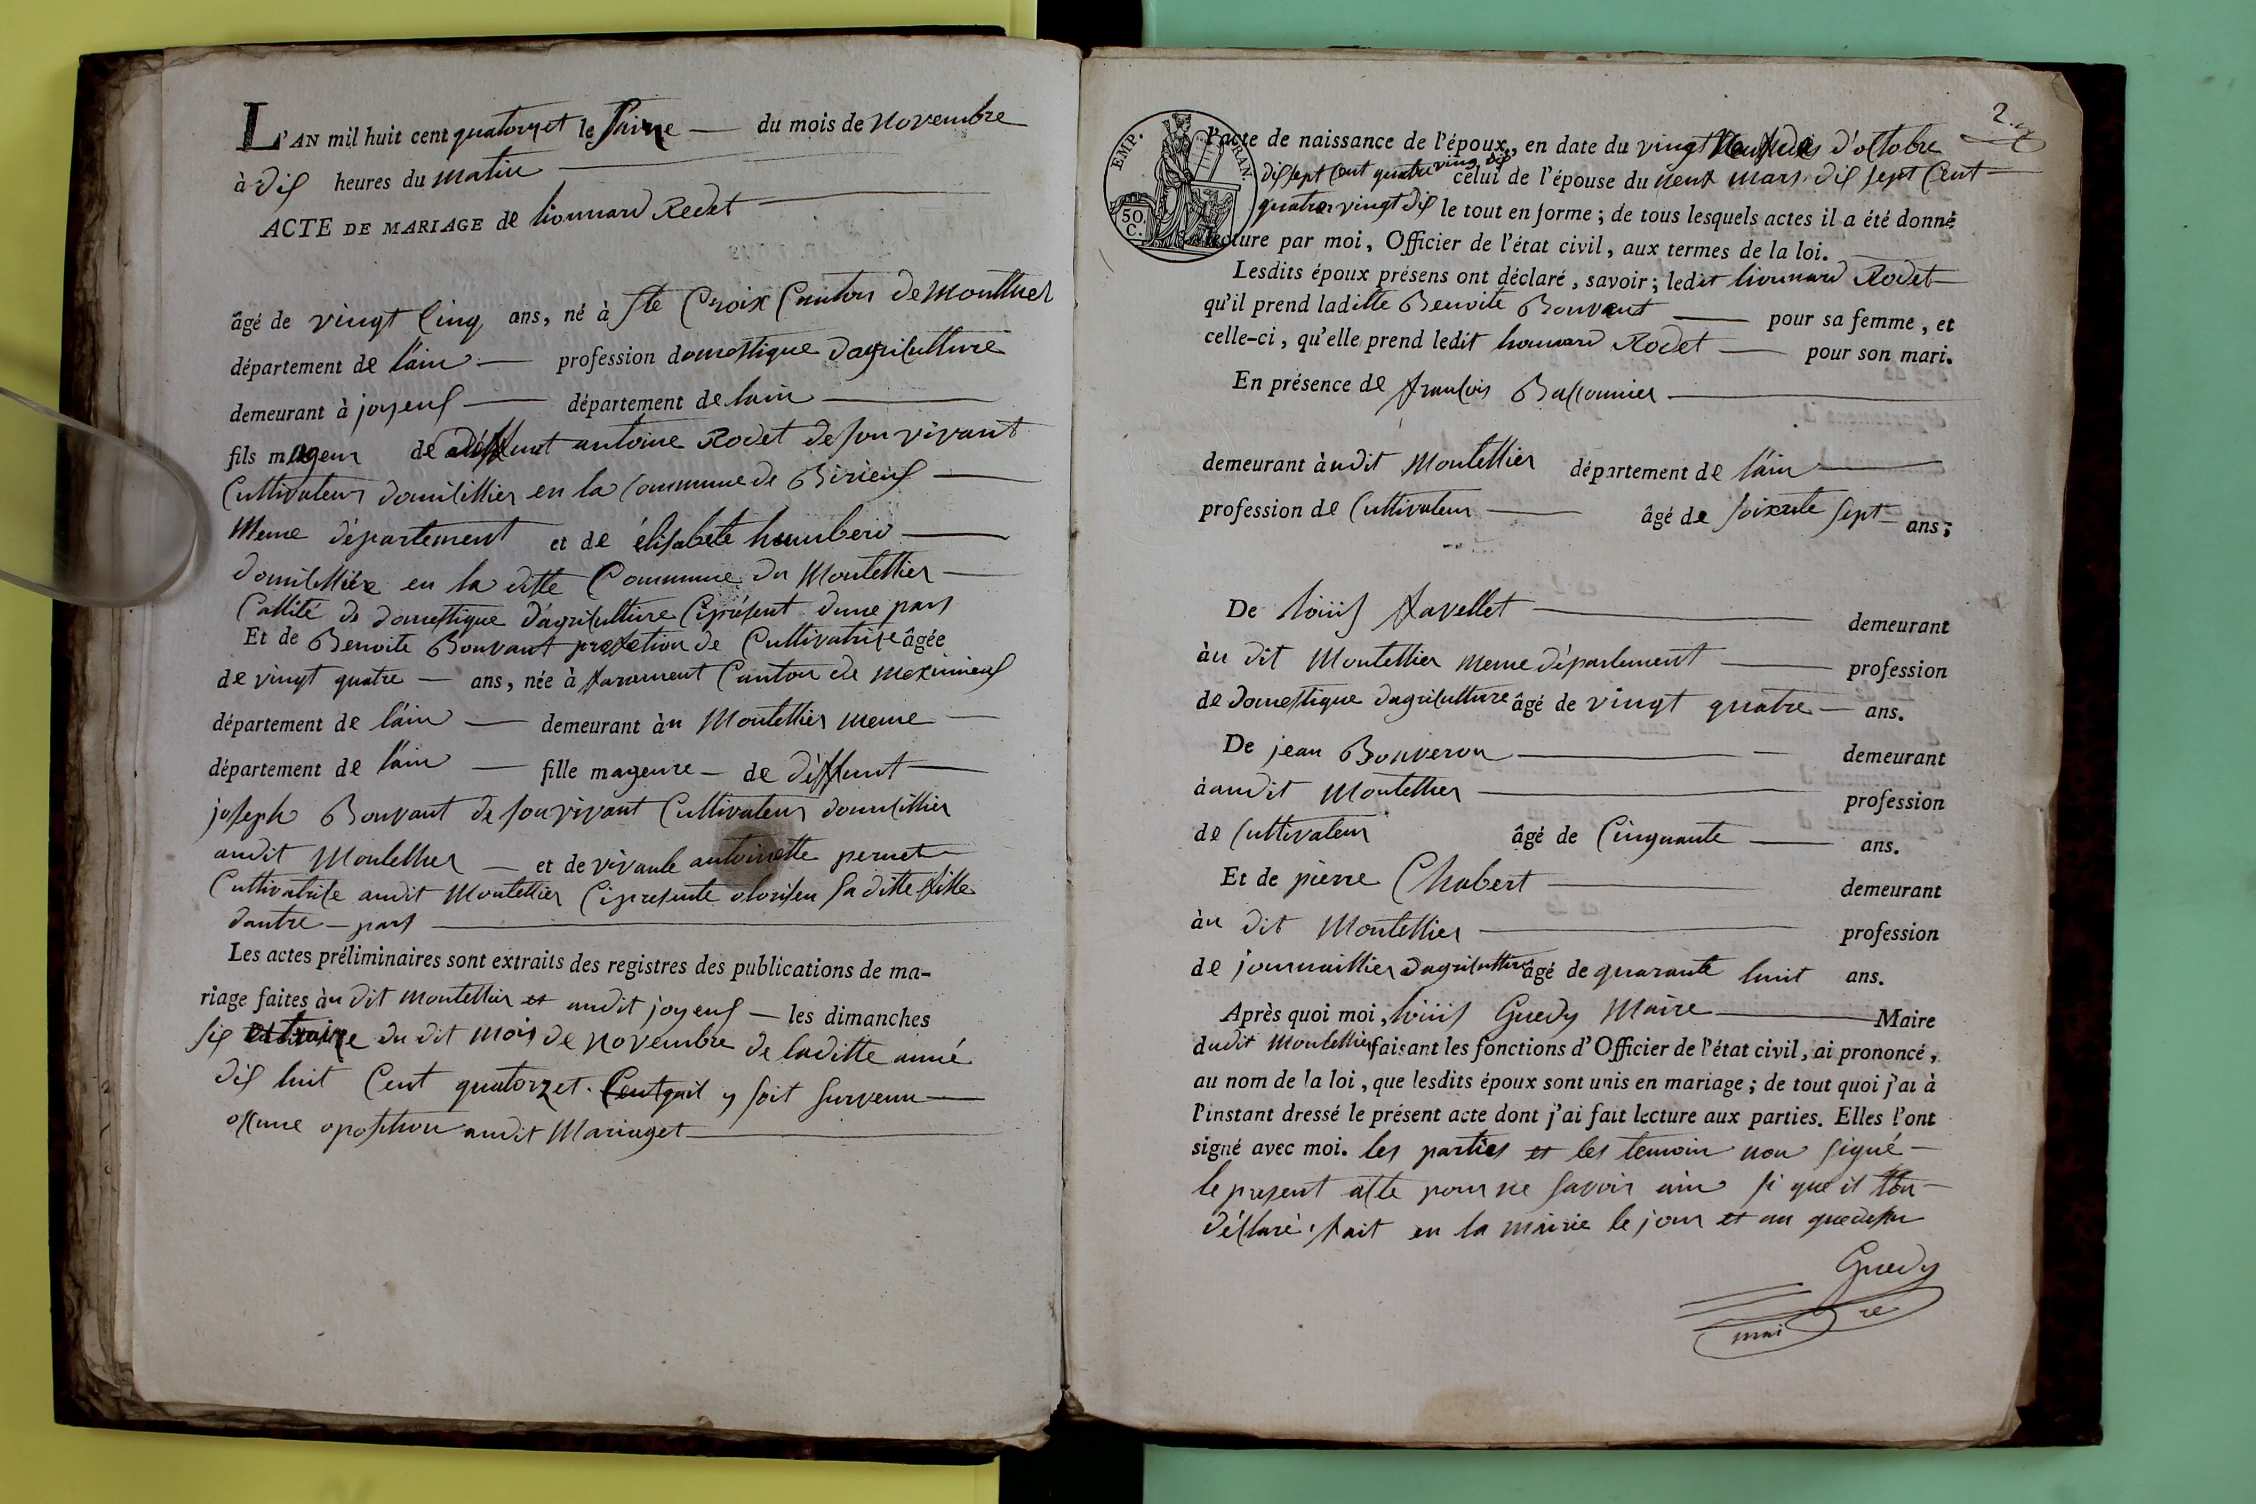 L'AN mil huit cent quatorzet le — du mois de novembre
à dix heures du matin
ACTE DE MARIAGE de lionnard Redet
âgé de vingt Cinq ans, né à Ste Croix Canton de Montluel
département de l'ain — profession domestique dagriculture
demeurant à joyeux — département de lain
fils mageur de deffunt antoine Rodet de son vivant
Cultivateur domicillier en la Commune de Birieux
Meme département et de élisabete humberd
domicillièe en la ditte Commune du Montellier
Callité de domestique d'agriculture Ciprésent dune part
Et de Benoite Bouvant profetion de Cultivatrise âgée
de vingt quatre — ans, née à faramant Canton de meximieux
département de l'ain — demeurant àu Montellier meme
département de l'ain — fille mageure — de deffunt
joseph Bouvant de son vivant Cultivateur domicillier
audit Montellier — et de vivante antoinette pernet
Cultivatrise audit Montellier Cipresente otorisen sa ditte fille
dautre — part
Les actes préliminaires sont extraits des registres des publications de ma-
riage faites àu dit montellier et audit joyeux — les dimanches
six et treize du dit mois de novembre de laditte anné
dix huit Cent quatorzet. y soit survenu
oqune oposition audit Mariaget
2.
EMP. FRAN
50. C.
l'acte de naissance de l'époux, en date du vingt d'octobre
dix sept Cent quatre ving dix celui de l'épouse du neuf mars dix sept Cent
quatre vingt dix le tout en forme; de tous lesquels actes il a été donné
lecture par moi, Officier de l'état civil, aux termes de la loi.
Lesdits époux présens ont déclaré, savoir; ledit lionnard Rodet
qu'il prend laditte Benoite Bouvant — pour sa femme, et
celle-ci, qu'elle prend ledit lionnard Rodet — pour son mari.
En présence de françois Bassonnier
demeurant àudit Montellier département de l'ain
profession de Cultivateur — âgé de soixente sept ans;
De loüis favellet — demeurant
àu dit Montellier meme département — profession
de domestique dagriculture âgé de vingt quatre — ans.
De jean Bouveron — demeurant
àaudit Montellier — profession
de Cultivateur âgé de Cinquante — ans.
Et de pierre Chabert — demeurant
àu dit Montellier — profession
de journaillier dagriculture âgé de quarante huit ans.
Après quoi moi, loüis Guedy Maire — Maire
dudit Montellier faisant les fonctions d'Officier de l'état civil, ai prononcé,
au nom de la loi, que lesdits époux sont unis en mariage; de tout quoi j'ai à
l'instant dressé le présent acte dont j'ai fait lecture aux parties. Elles l'ont
signé avec moi. les parties et les temoin non signé
le present acte pour ne savoir ain si que il lon
déclaré. fait en la mairie le jour et an
Guedy
maire